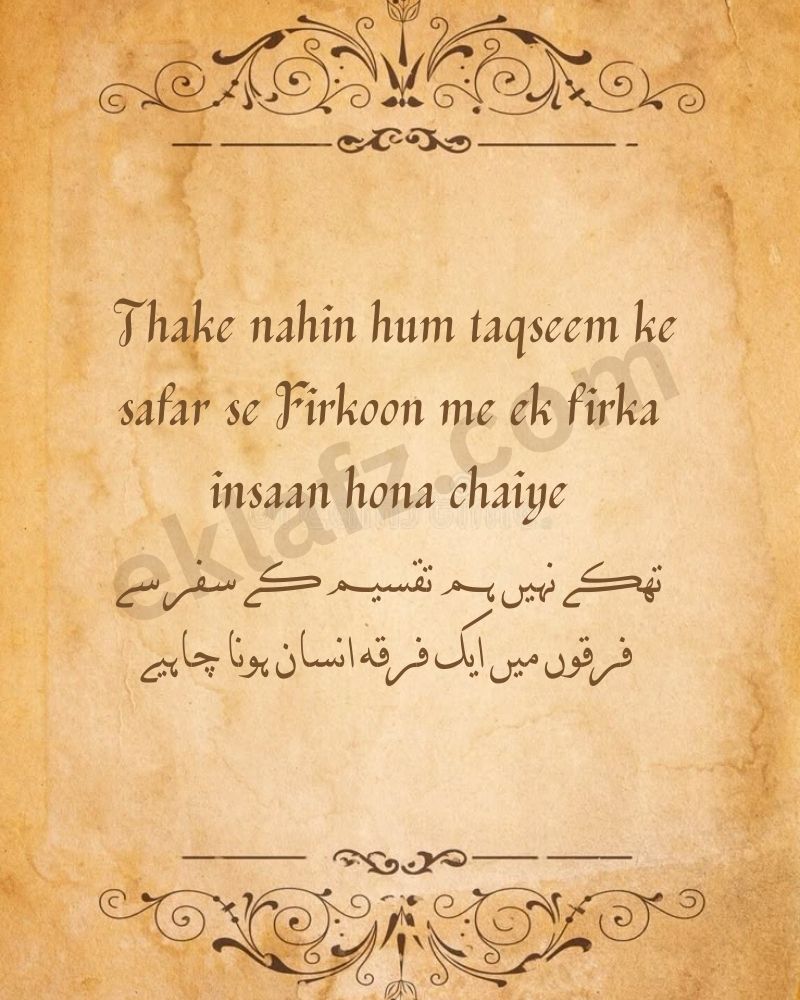 Thake nahin hum taqseem ke
safar se Firkoon me ek firka
insaan hona chaiye
تھکے نہیں ہم تقسیم کے سفر سے
فرقوں میں ایک فرقہ انسان ہونا چاہیے
eklafz.com